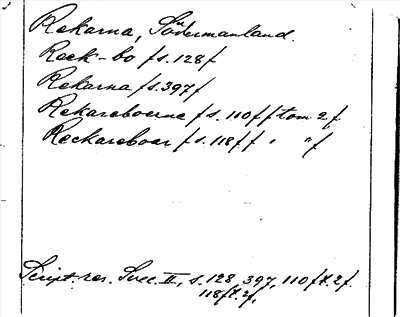 Rekarna, Södermanland.
Reek-bo / s. 128 /
Rekarna / s. 397 /
Rekareboerne / s. 110 / f tom 2 /
Reckareboar / s. 118 / f " " /
Script. rer. Svec. II, s. 128, 397, 110 f t. 2 f.
118 f t. 2 f,